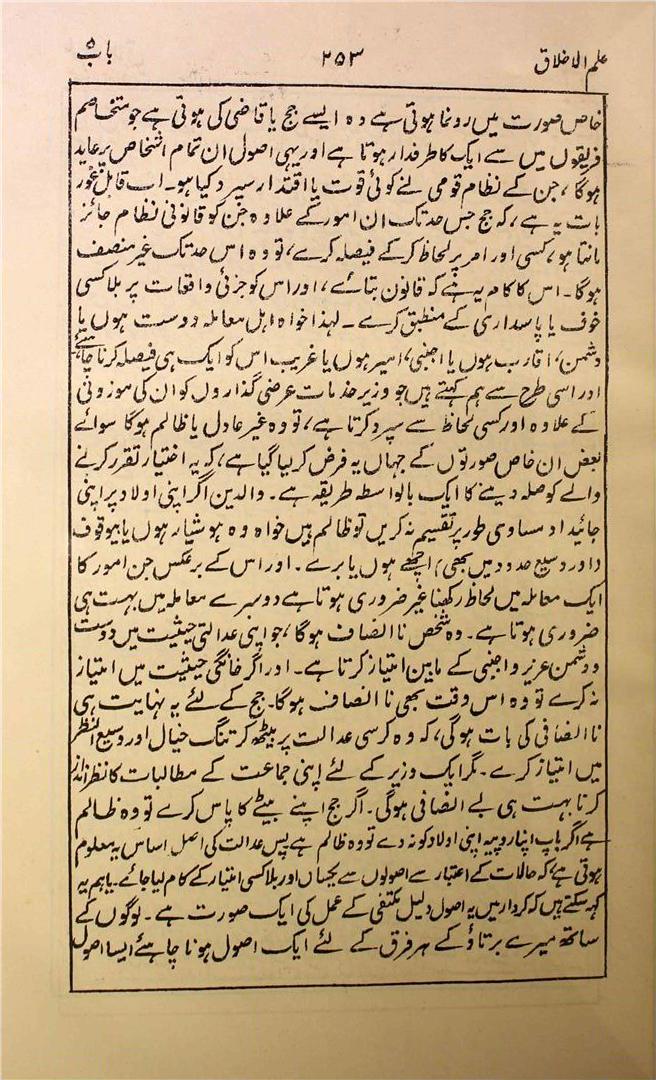 علم الاخلاق
۲۵۳
باب ۵
خاص صورت میں رونما ہوتی ہے وہ ایسے جج یا قاضی کی ہوتی ہے جو متخاصم
فریقوں میں سے ایک کا طرفدار ہوتا ہے اور یہی اصول ان تمام اشخاص پر عاید
ہوگا، جن کے نظام قومی نے کوئی قوت یا اقتدار سپرد کیا ہو۔ اب قابل غور
بات یہ ہے، کہ جج جس حد تک ان امور کے علاوہ جن کو قانونی نظام جائز
مانتا ہو، کسی اور امر پر لحاظ کرکے فیصلہ کرے، تو وہ اس حد تک غیر منصف
ہوگا۔ اس کا کام یہ ہے کہ قانون بتائے، اور اس کو جزئی واقعات پر بلا کسی
خوف یا پاسداری کے منطبق کرے۔ لہذا خواہ اہل معاملہ دوست ہوں یا
دشمن، اقارب ہوں یا اجنبی، امیر ہوں یا غریب اس کو ایک ہی فیصلہ کرنا چاہئے
اور اسی طرح سے ہم کہتے ہیں جو وزیر خدمات عرضی گذاروں کو ان کی موزونی
کے علاوہ اور کسی لحاظ سے سپرد کرتا ہے، تو وہ غیر عادل یا ظالم ہوگا سوائے
بعض ان خاص صورتوں کے جہاں یہ فرض کر لیا گیا ہے، کہ یہ اختیار تقرر کرنے
والے کو صلہ دینے کا ایک بالواسطہ طریقہ ہے۔ والدین اگر اپنی اولاد پر اپنی
جائیداد مساوی طور پر تقسیم نہ کریں تو ظالم ہیں خواہ وہ ہوشیار ہوں یا بیوقوف
داور وسیع حدود میں بھی، اچھے ہوں یا برے۔ اور اس کے برعکس جن امور کا
ایک معاملہ میں لحاظ رکھنا غیر ضروری ہوتا ہے دوسرے معاملہ میں بہت ہی
ضروری ہوتا ہے۔ وہ شخص نا انصاف ہوگا، جو اپنی عدالتی حیثیت میں دوست
و دشمن عزیز و اجنبی کے مابین امتیاز کرتا ہے۔ اور اگر خانگی حیثیت میں امتیاز
نہ کرے تو وہ اس وقت بھی نا انصاف ہوگا۔ جج کے لئے یہ نہایت ہی
نا انصافی کی بات ہوگی، کہ وہ کرسی عدالت پر بیٹھ کر تنگ خیال اور وسیع النظر
میں امتیاز کرے۔ مگر ایک وزیر کے لئے اپنی جماعت کے مطالبات کا نظر انداز
کرنا بہت ہی بے انصافی ہوگی۔ اگر جج اپنے بیٹے کا پاس کرے تو وہ ظالم
ہے اگر باپ اپنا روپیہ اپنی اولاد کو نہ دے تو وہ ظالم ہے پس عدالت کی اصل اساس یہ معلوم
ہوتی ہے، کہ حالات کے اعتبار سے اصولوں سے یکساں اور بلا کسی امتیاز کے کام لیا جائے۔ یا ہم یہ
کہہ سکتے ہیں کہ کردار میں یہ اصول دلیل مکتفی کے عمل کی ایک صورت ہے۔ لوگوں کے
ساتھ میرے برتاؤ کے ہر فرق کے لئے ایک اصول ہونا چاہئے ایسا اصول